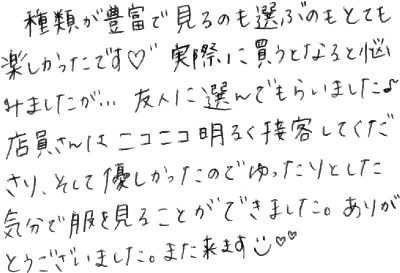 種類が豊富で見るのも選ぶのもとても
楽しかったです♡ 実際に買うとなると悩
みましたが… 友人に選んでもらいました♪
店員さんはニコニコ明るく接客してくだ
さり、そして優しかったのでゆったりとした
気分で服を見ることができました。ありが
とうございました。また来ます☺♡♡